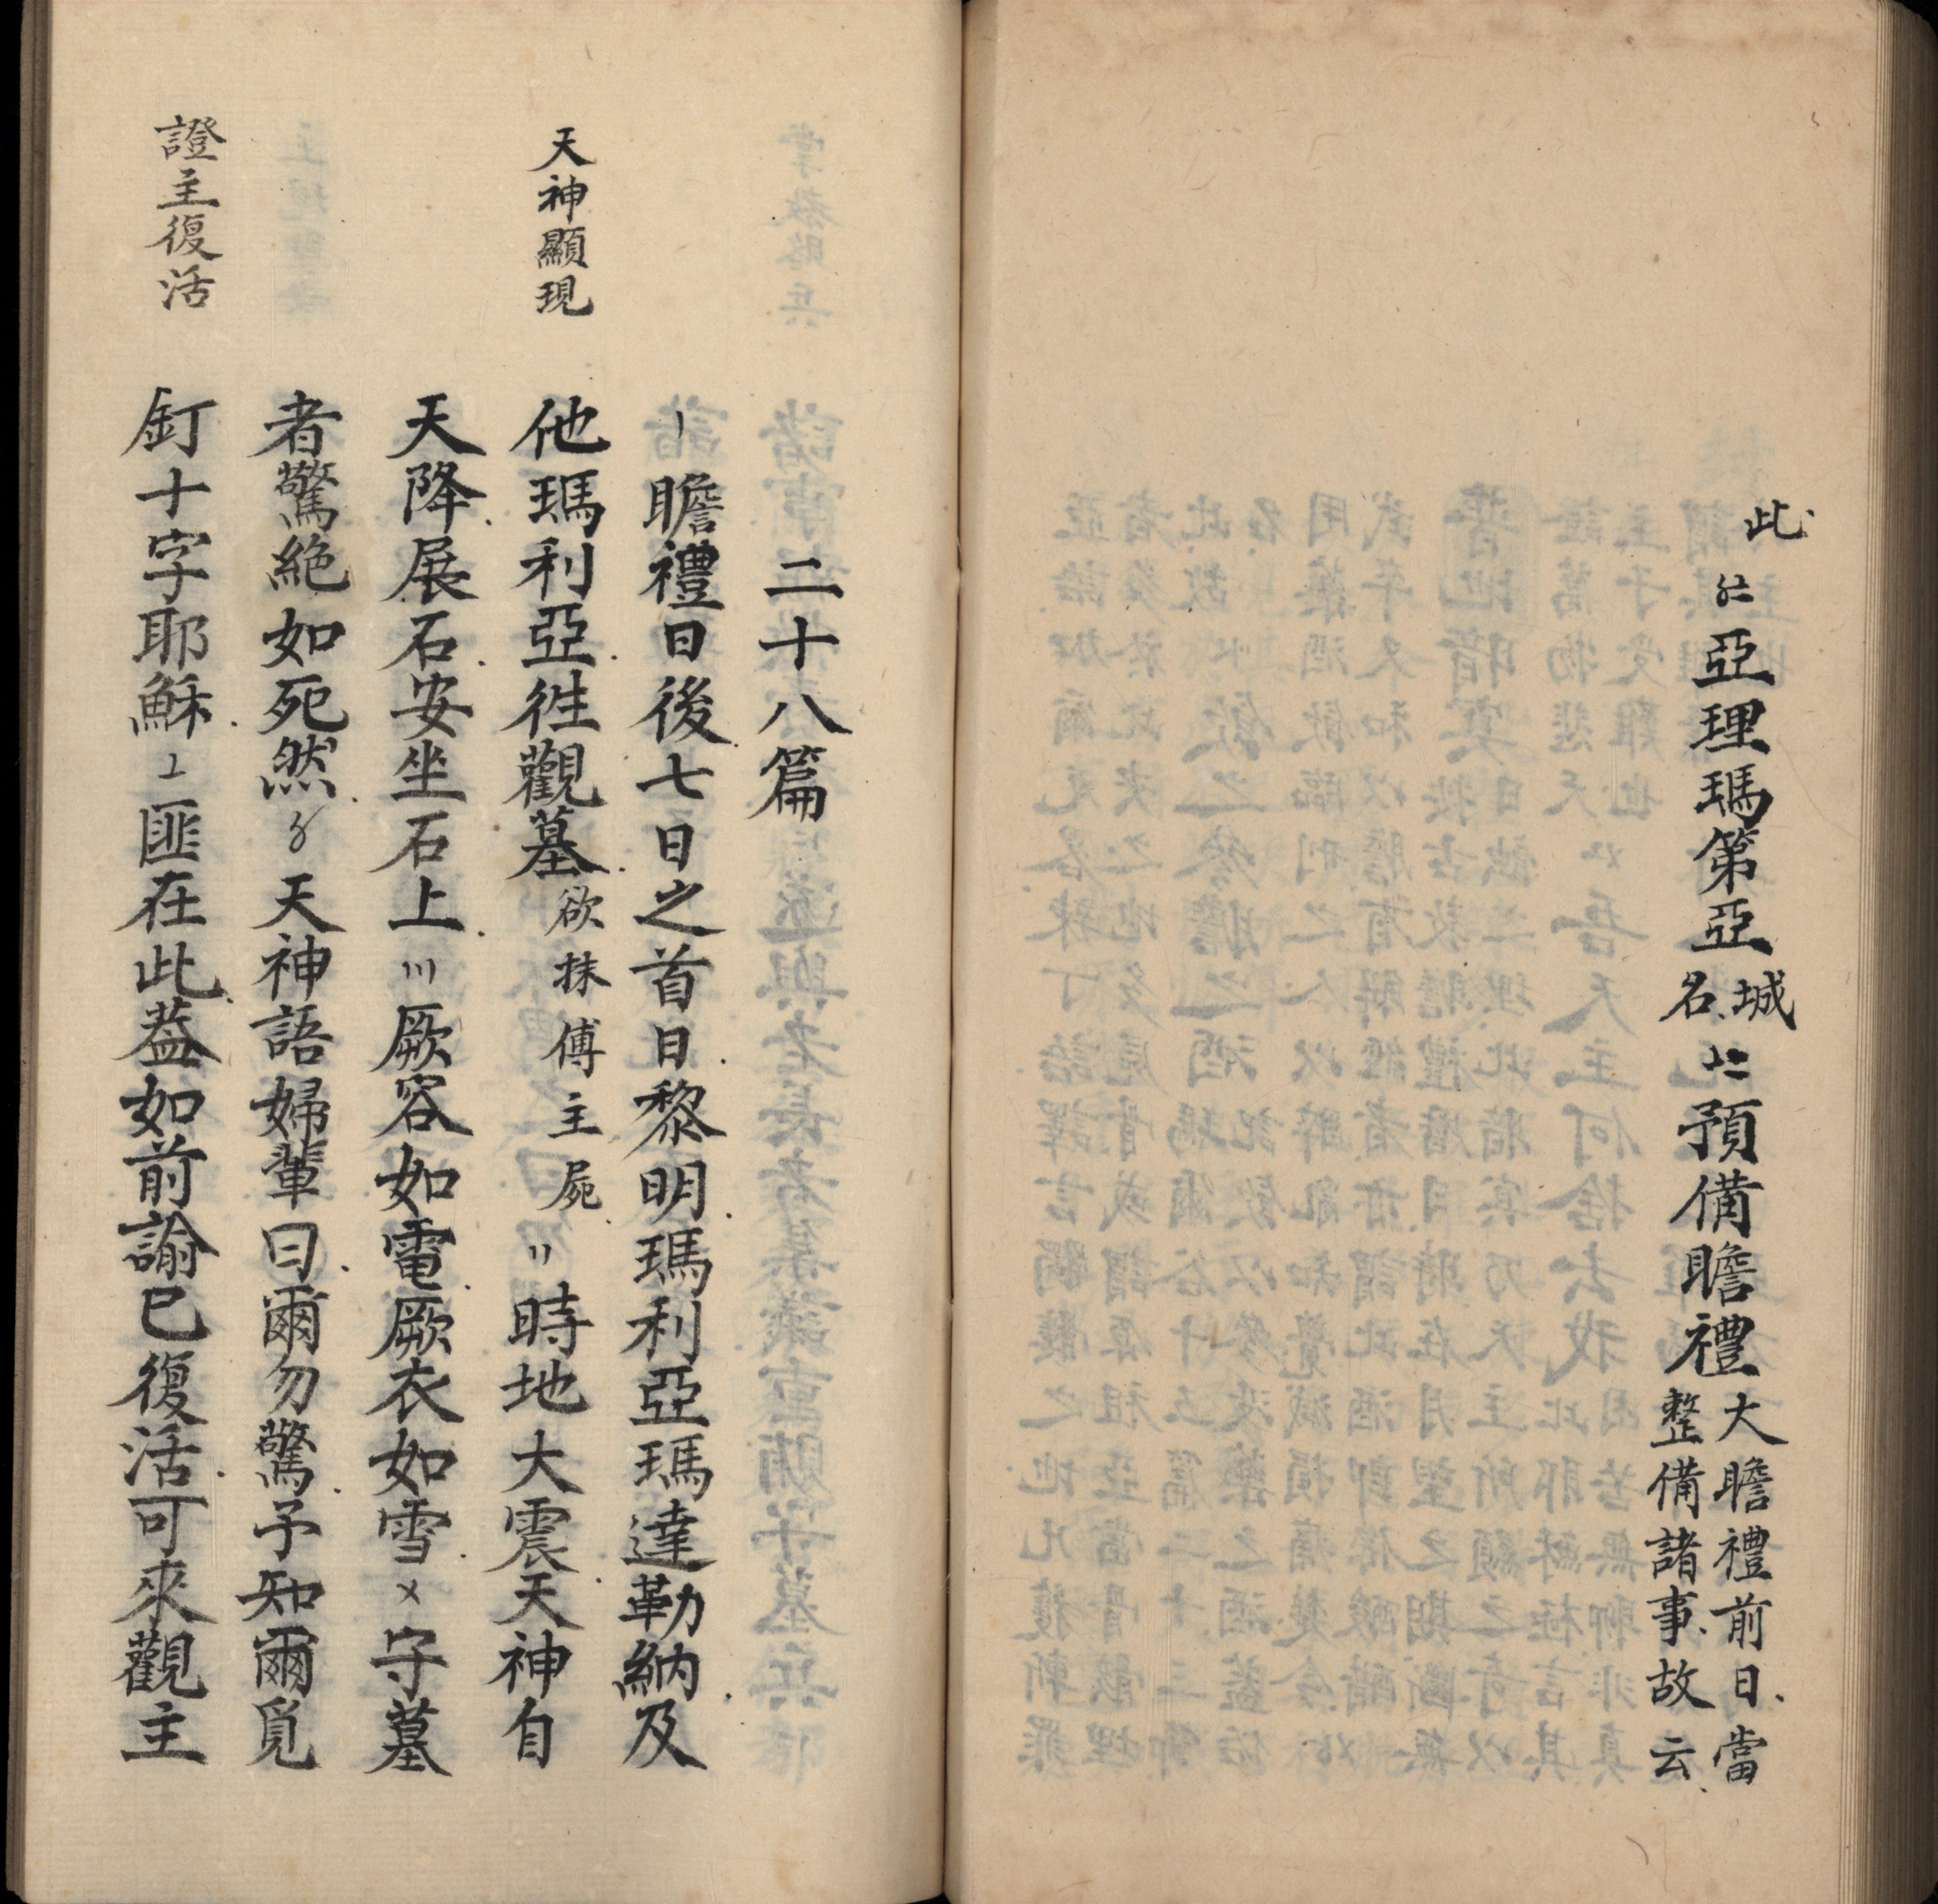 此
〥〧亞理瑪第亞城名〦二預備瞻禮大瞻禮前日當
整備諸事故云
二十八篇
〡瞻禮日後七日之首日黎明瑪利亞瑪達勒納及
天神顯現
他瑪利亞徃觀墓欲抹傅主屍〢時地大震天神自
天降展石安坐石上〣厥容如電厥衣如雪〤守墓
者驚絶如死然〥天神語婦輩曰爾勿驚予知爾覓
證主復活
釘十字耶穌〦匪在此葢如前諭已復活可來觀主